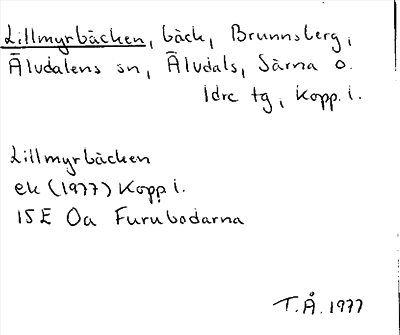 Lillmyrbäcken, bäck, Brunnsberg,
Älvdalens sn, Älvdals, Särna o.
Idre tg, Kopp. l.
Lillmyrbäcken
ek (1977) Kopp l.
15E 0a Furubodarna
T.Å. 1977